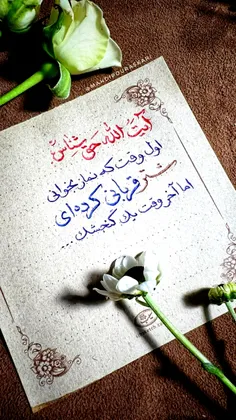 @MAHDIPOURASKARI
آیت الله حق شناس
اول وقت که نماز بخوانی
شتر قربانی کرده‌ای
اما آخر وقت یک گنجشک ...